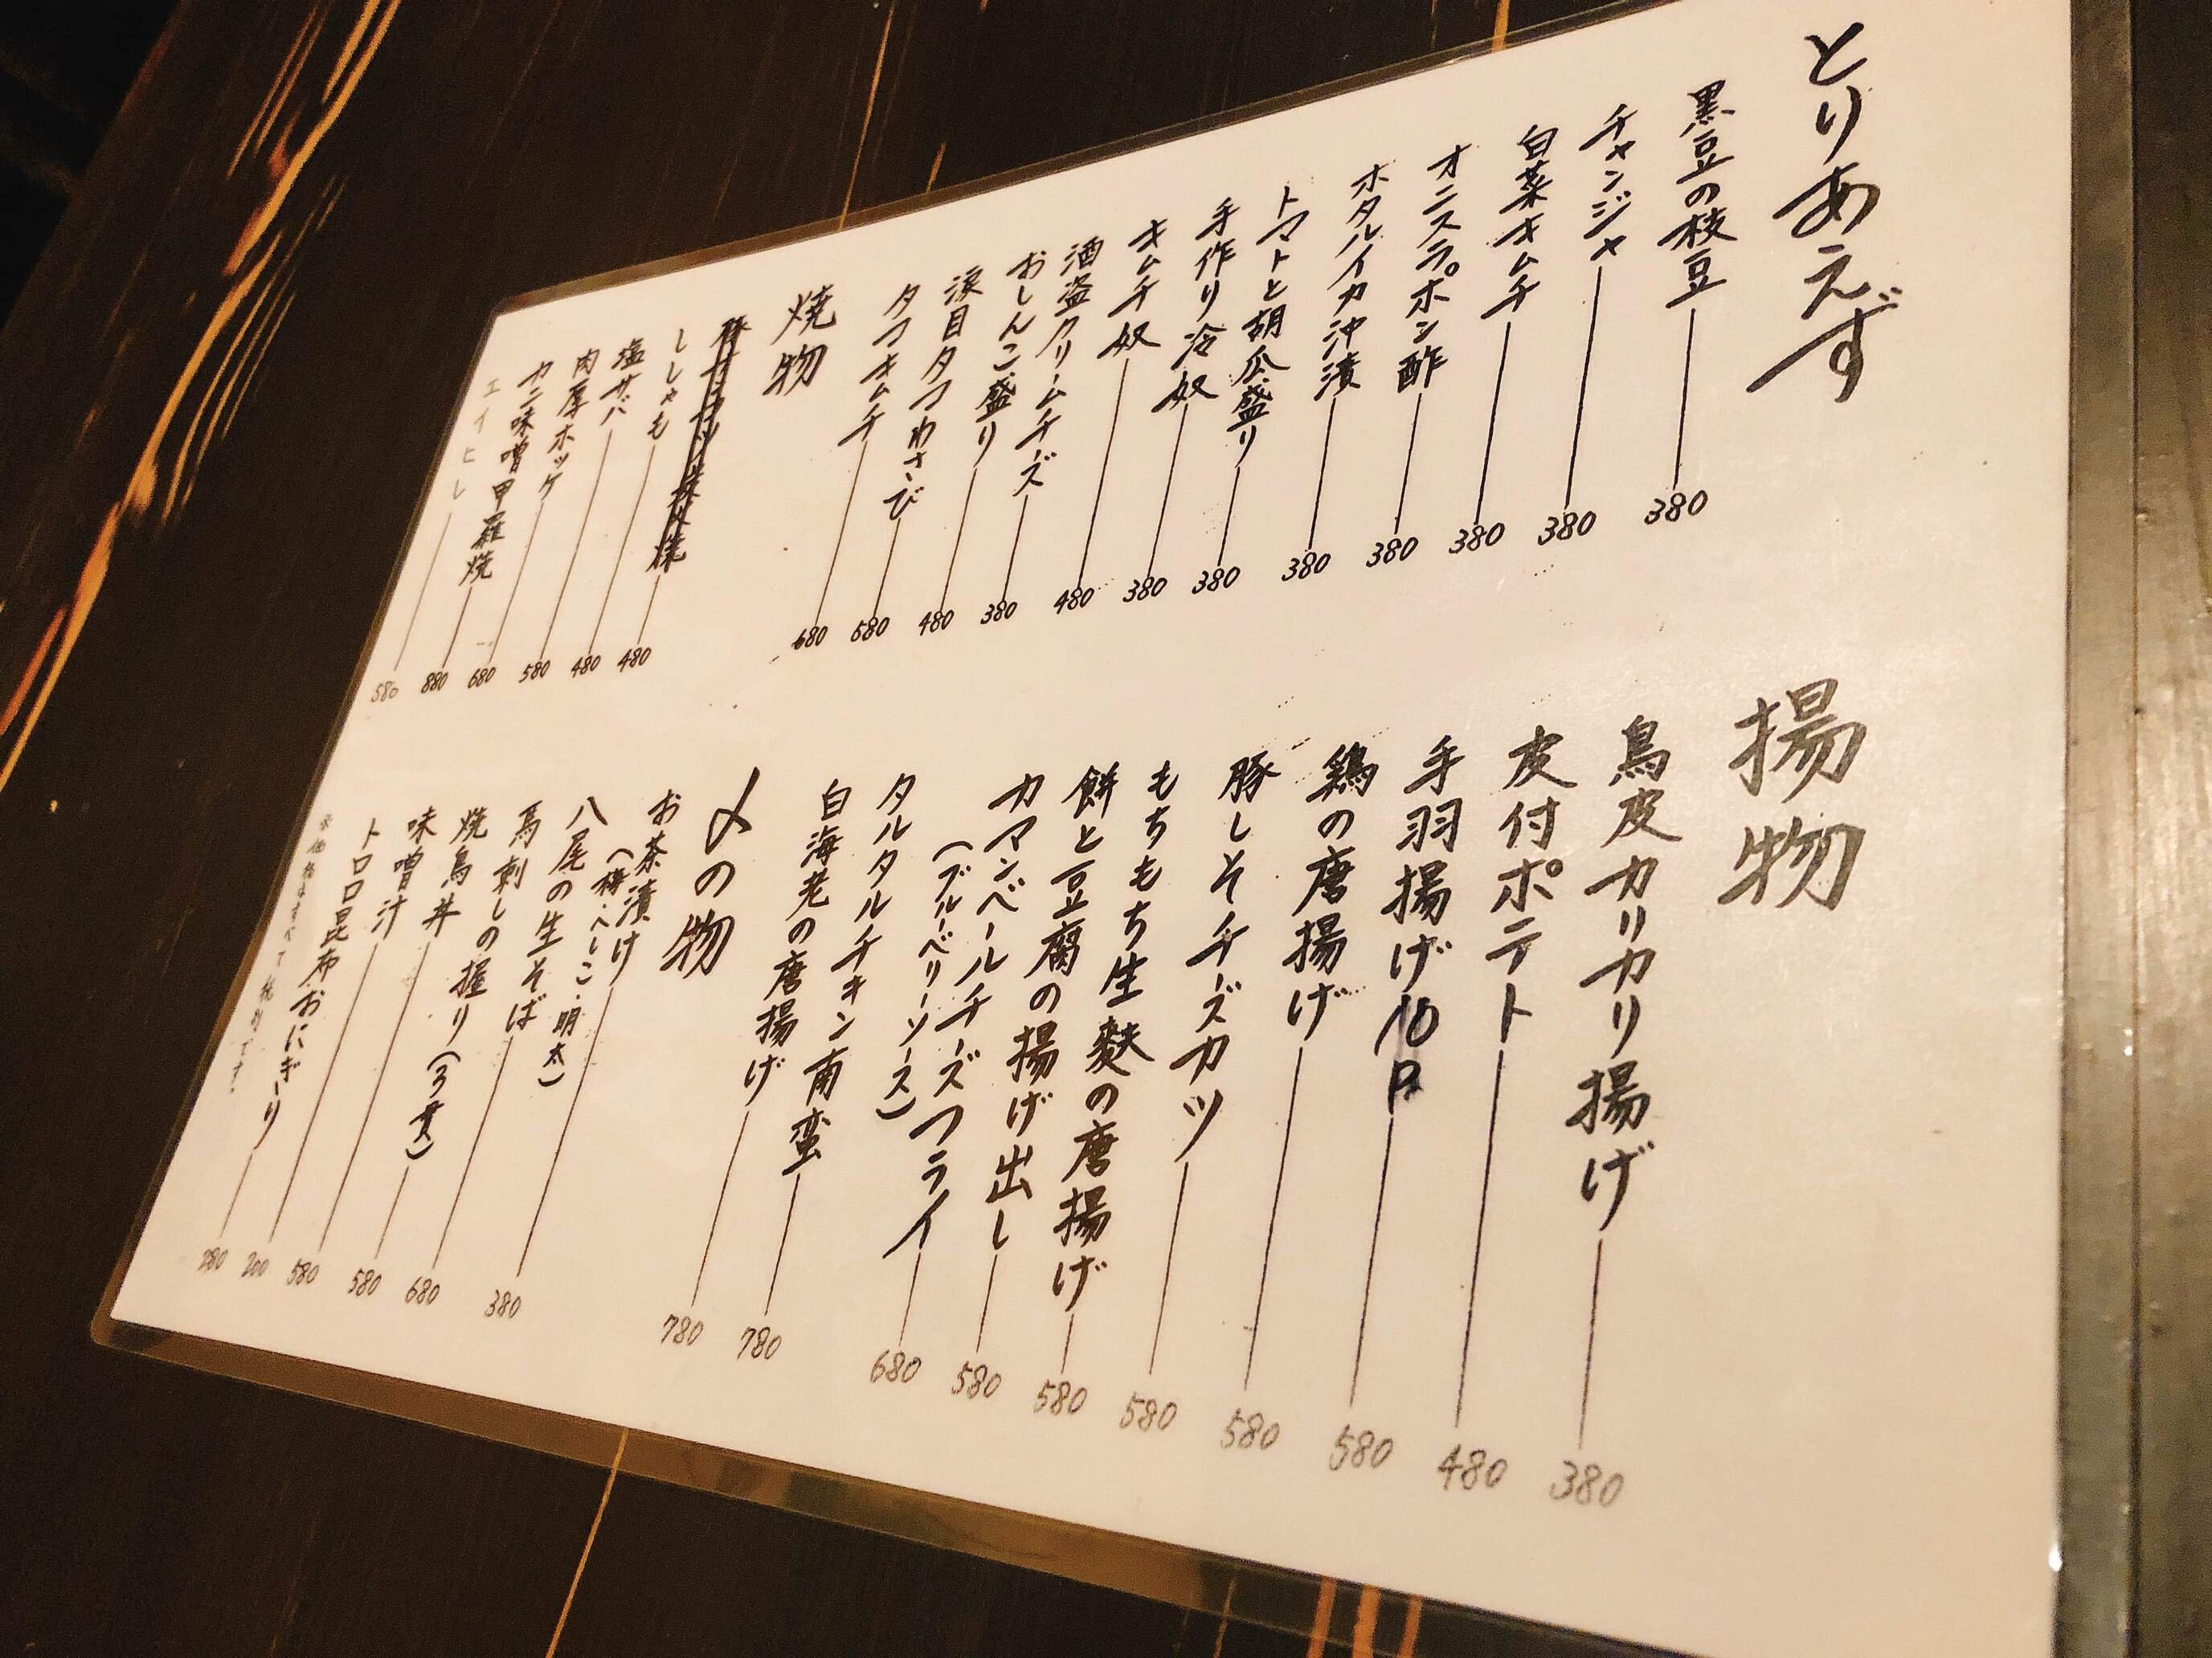 とりあえず
黒豆の枝豆 380
チャンジャ 380
白菜キムチ 380
オニスラポン酢 380
ホタルイカ沖漬 380
トマトと胡瓜盛り 380
手作り冷奴 380
キムチ奴 480
酒盗クリームチーズ 380
おしんこ盛り 480
涙目タコわさび 580
タコキムチ 680
焼物
ししゃも 480
塩サバ 480
肉厚ホッケ 580
カニ味噌甲羅焼 880
エイヒレ 580
揚物
鳥皮カリカリ揚げ 380
皮付ポテト 480
手羽揚げ10P 580
鶏の唐揚げ 580
豚しそチーズカツ 580
もちもち生麩の唐揚げ 580
餅と豆腐の揚げ出し 580
カマンベールチーズフライ 680
(ブルーベリーソース)
タルタルチキン南蛮 780
白海老の唐揚げ 780
〆の物
お茶漬け 380
(梅・へしこ・明太)
八尾の生そば 680
馬刺しの握り(3貫) 580
焼鳥丼 580
味噌汁 200
トロロ昆布おにぎり 280